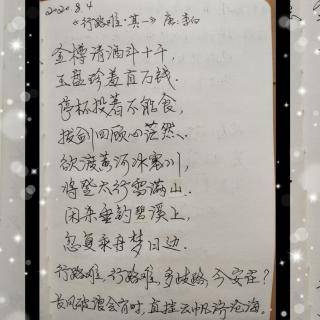 2020.8.4
《行路难·其一》唐:李白
金樽清酒斗十千,
玉盘珍羞直万钱.
停杯投著不能食,
拔剑四顾心茫然、
欲渡黄河冰塞川,
将登太行雪满山.
闲来垂钓碧溪上,
忽复乘舟梦日边.
行路难,行路难,多歧路,今安在?
长风破浪会有时,直挂云帆济沧海.